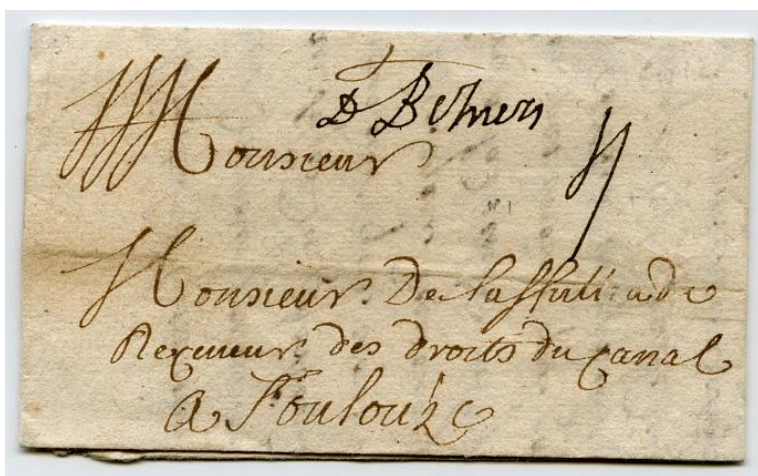 D Beziers
Monsieur
4
Monsieur De
Receveur des droits du Canal
A Toulouze